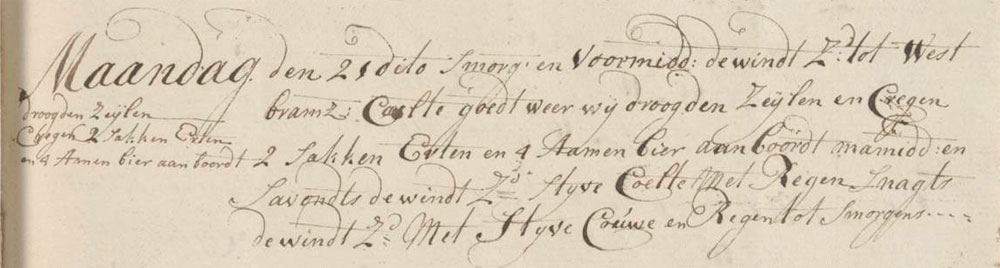 Maandag den 21 dito Smorg: en Voormidd: de windt Z:d tot West
bramz: Coelte goedt weer wij droogden Zeijlen en Cregen
2 Sakken Erten en 4 Aamen bier aan boordt namidd: en
Savondts de windt Z:d Styve Coelte Met Regen Snagts
de windt Z:d Met Styve Couwe en Regen tot Smorgens
droogden Zeijlen
Cregen 2 Sakken Erten
en 4 Aamen bier aan boordt